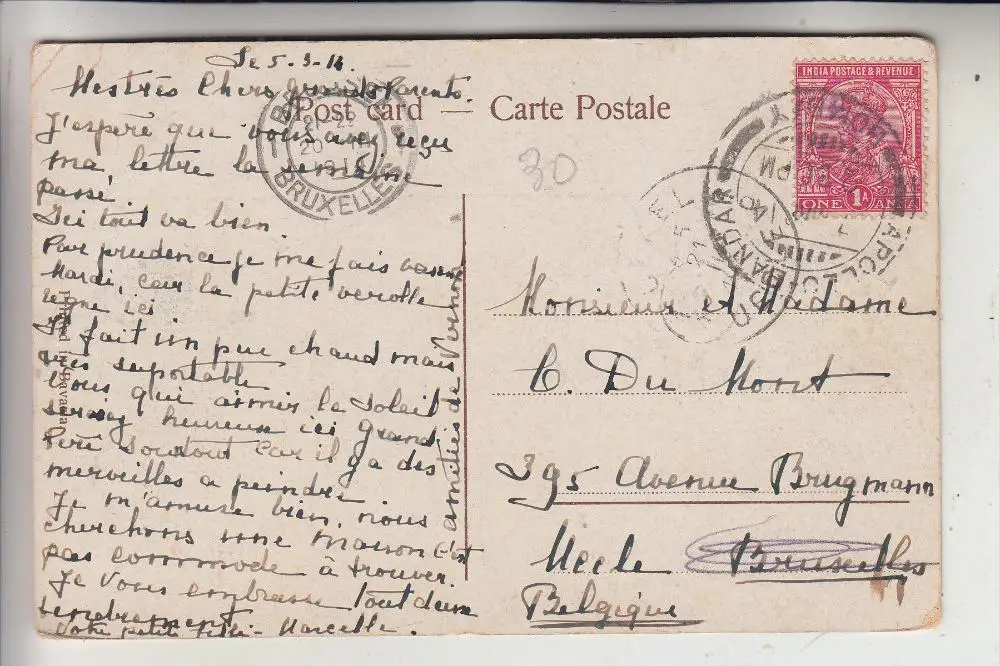 Le 5-3-14.
Mes très Chers grands Parents.
J'espère que vous avez reçu
ma, lettre la semaine
passé.
Ici tout va bien.
Par prudence je me fais vacciné
Mardi, car la petite verolle
regne ici
Il fait un peu chaud mais
très suportable
Vous qui aimer le soleil
seriez heureux ici Grand.
Père Sourtout car il y a des
merveilles a peindre.
Je m'amuse bien, nous
cherchons une maison c'est
pas commode à trouver.
Je vous embrasse tout deux
tendrement
Votre petite fille - Marcelle.
amitiés de Vernon
Post card — Carte Postale
30
INDIA POSTAGE & REVENUE
ONE 1A ANNA
BRUXELLES
BANDAR
APOLLO
UCCLE
Printed in Bavaria
Monsieur et Madame
C. Du Mont
395 Avenue Brugmann
Uccle Bruxelles
Belgique